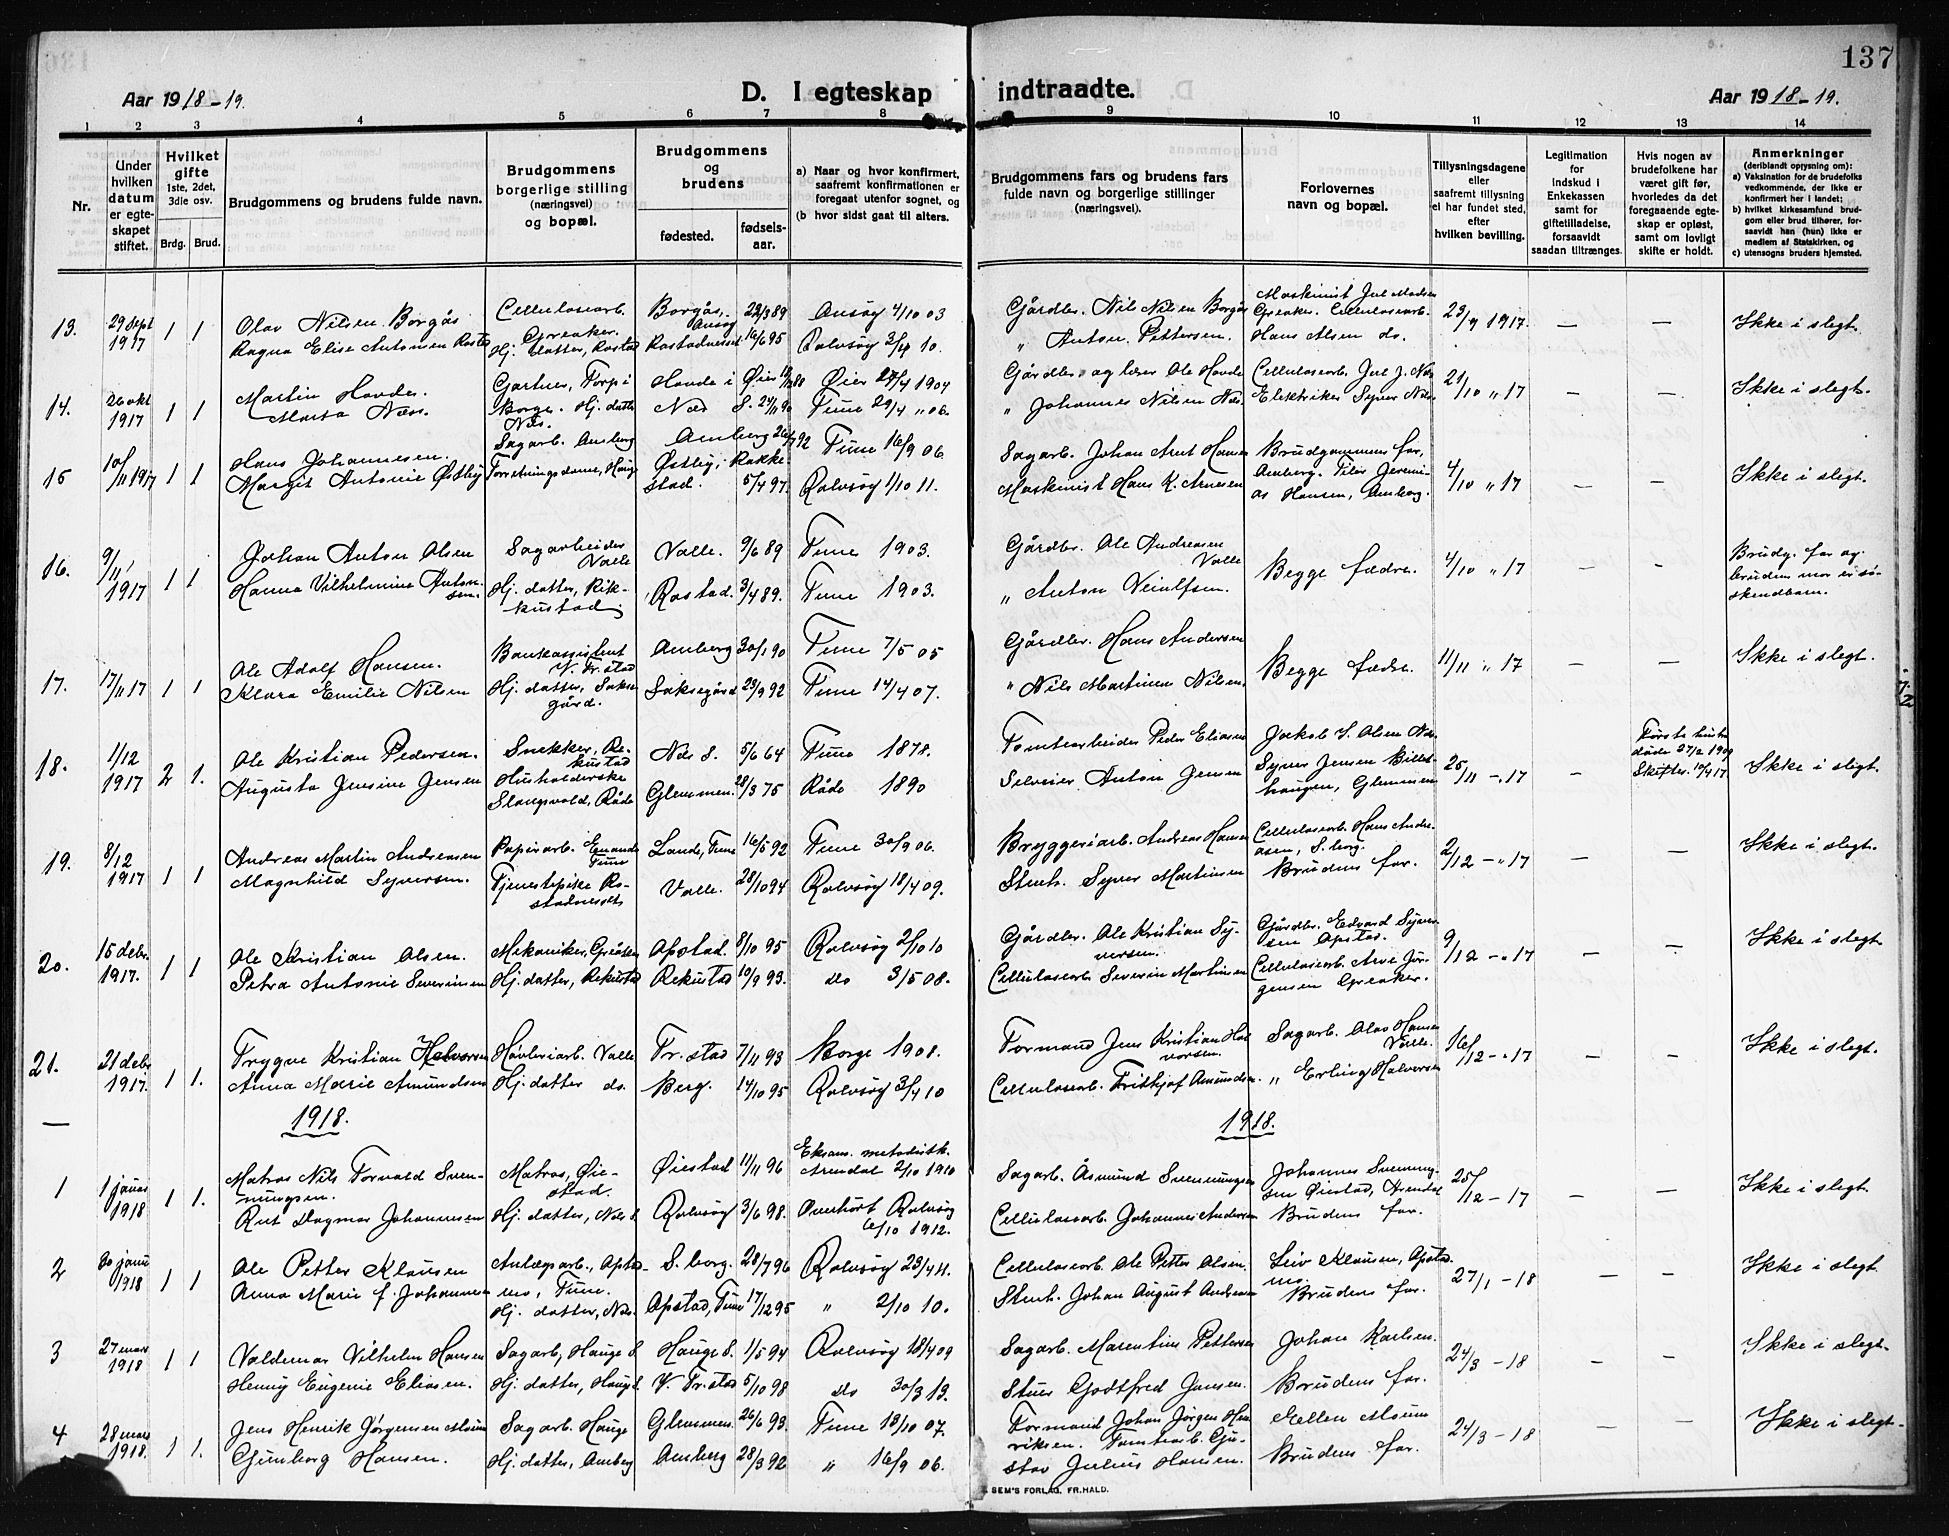 137
Aar 1918-19.
D. I egteskap indtraadte.
Aar 1918-19.
1 2 3 4 5 6 7 8 9 10 11 12 13 14
Nr.
Under hvilken datum er egteskapet stiftet.
Hvilket gifte 1ste, 2det, 3die osv.
Brdg. Brud.
Brudgommens og brudens fulde navn.
Brudgommens borgerlige stilling (næringsvei) og bopæl.
Brudgommens og brudens
fødested. fødselsaar.
a) Naar og hvor konfirmert, saafremt konfirmationen er foregaat utenfor sognet, og
(b hvor sidst gaat til alters.
Brudgommens fars og brudens fars fulde navn og borgerlige stillinger (næringsvei).
Forlovernes navn og bopæl.
Tillysningsdagene eller saafremt tillysning ei har fundet sted, efter hvilken bevilling.
Legitimation for indskud i Enkekassen samt for giftetilladelse, forsaavidt saadan tiltrænges.
Hvis nogen av brudefolkene har været gift før, hvorledes da det foregaaende egteskap er opløst, samt om lovligt skifte er holdt.
Anmerkninger (deriblandt opysning om):
a) Vaksination for de brudefolks vedkommende, der ikke er konfirmert her i landet:
b) hvilket kirkesamfund brudgom eller brud tilhører, forsaavidt han (hun) ikke er medlem af Statskirken, og
c) utensogns bruders hjemsted.
13. 29 sept 1917 1 1 Olav Nilsen Borgås Cellulosearb. Greaker. Borgås, 22/3 89 4/10 03 Gårdbr. Nils Nilsen Borgås Maskinist Jul Madsen Greaker. Cellulosearb. 23/9 1917. — — Ikke i slegt.
Ragna Elise Antonsen Rostad Hj. datter, Rostad Rostadnesset 16/6 95 Rolvsøy 3/4 10. " Anton Pettersen. Hans Alsen do.
14. 26 okt 1917 1 1 Martin Hovde. Gartner, Torp i Borge. Hovde i Øier Øier 27/4 1904 Gårdbr. og lærer Ole Hovde Cellulosearb. Jul J. Næs 21/10 " 17 — — Ikke i slegt.
Marta Næs. Hj. datter Næs. Næs S. 24/11 90 Tune 29/4 " 06. " Johannes Nilsen Næs. Elektriker Syver Næs
15 10/11 1917 1 1 Hans Johannesen. Sagarb. Amberg Amberg 26/7 92 Tune 16/9 06. Sagarb. Johan Arnt Hansen Brudgommens far, Amberg. 4/10 " 17 — — Ikke i slegt.
Margit Antonie Østby Forretningsdame, Hauge Østby, Rakkestad. 5/4 97. Rolvsøy 1/10 11. Maskinist Hans K. Arnesen Jeremias Hansen, Amberg.
16. 9/11, 1917 1 1 Johan Anton Olsen Sagarbeider Valle Valle. 9/6 89 Tune 1903. Gårdbr. Ole Andreasen Valle Begge fædre. 4/10 " 17 — — Brudg. far og brudens mor er søskendbarn.
Hanna Vilhelmine Antonsen. Hj. datter, Rikkustad Rostad. 3/4 89. Tune 1903. " Anton
17. 17/11 17 1 1 Ole Adolf Hansen. Bankassistent V. Fr.stad Amberg 30/1 90 Tune 7/5 05 Gårdbr. Hans Andersen Begge fædre. 11/11 " 17 — — Ikke i slegt.
Klara Emilie Nilsen Hj. datter, Saksegård. Saksegård 23/9 92 Tune 14/4 07. " Nils Martinus Nilsen.
18. 1/12 1917 2 1. Ole Kristian Pedersen. Snekker, Rekustad Næs S. 5/6 64 Tune 1878. Tomtearbeider Peder Eliassen Jakob S. Olsen Næs. 25/11 - " 17 — Første hustr. døde 27/2 1909 Skifter. 10/4 17. Ikke i slegt.
Augusta Jensine Jensen Husholderske Slangsvold, Råde Glemmen. 28/3 75 Råde 1890 Anton Jensen Syver Jensen Glemmen
19. 8/12 1917 1 1 Andreas Martin Andreasen Papirarb. Tune Lande, Tune 16/5 92 Tune 30/9 06. Bryggeriarb. Andreas Hansen Cellulosearb. Hans Andreasen, S. borg. 2/12 - " 17 — — Ikke i slegt.
Magnhild Syversen. Tjenestepike Rostadnesset Valle. 28/10 94 Rolvsøy 18/4 09. Stenh. Syver Martinsen Brudens far.
20. 15 debr. 1917. 1 1 Ole Kristian Olsen. Mekaniker, Greåker Opstad. 8/10 95 Rolvsøy 2/10 10 Gårdbr. Ole Kristian Syversen. Gårdbr. Edvard Syversen Opstad. 9/12 - " 17 — — Ikke i slegt
Petra Antonie Severinsen Hj. datter, Rekustad Rekustad 10/9 93. do 3/5 08. Cellulosearb. Severin Martinsen Cellulosearb. Arve Jørgensen Greaker.
21. 21 debr 1917. 1 1. Trygve Kristian Halvorsen Høvleriarb. Valle Fr. stad 7/11 93 Borge 1908. Formand Jens Kristian Halvorsen. Sagarb. Olav Hansen Valle. 16/12 - " 17 — — Ikke i slegt.
Anna Marie Amundsen Hj. datter do. Berg. 14/10 95 Rolvsøy 3/4 10 Cellulosearb. Fritkjof Amundsen. " Erling Halversen
— 1918. 1918.
1 1 januar 1918 1 1. Matros Nils Torvald Svennungsen. Matros, Øiestad. Øiestad 11/11 96 Eksam. metodistk. Arendal 2/10 1910 Sagarb. Åsmund Svennungsen Johannes Svenningsen Øiestad, Arendal 25/12 - 17 — — Ikke i slegt.
Rut Dagmar Johannesen Hj. datter, Næs S. Rolvsøy 3/6 98. Overhørt Rolvsøy 6/10 1912. Cellulosearb. Johannes Andersen Brudens far.
2 30 janu 1918 1 1 Ole Petter Klausen Anlægsarb., Opstadmo, Tune. S. borg. 28/7 96 Rolvsøy 23/4 11. Cellulosearb. Ole Petter Olsen. Leiv Klausen, Opstadmo. 27/1 - 18 — — Ikke i slegt
Anna Marie f. Johannesen Hj. datter, Næs. Opstad, Tune 17/12 95 " 2/10 10. Stenh. Johan August Andersen Brudens far.
3 27 mars 1918 1 1 Valdemar Vilhelm Hansen Sagarb, Hauge S. Hauge S. 1/5 94 Rolvsøy 18/4 09 Sagarb. Marentius Pettersen Johan Karlsen. 24/3 - 18 — — Ikke i slegt.
Henny Eugenie Eliasen. Hj. datter, Hauge S. V. Fr.stad 5/10 98 do 30/3 13. Stuer Godtfred Jansen. Brudens far.
4 28 mars 1918. 1 1. Jens Henrik Jørgensen Moum Sagarb. Hauge Glemmen. 26/6 93. Tune 13/10 07. Formand Johan Jørgen Henriksen. Moum 24/3 - 18 — — Ikke i slegt.
Gunborg Hansen. Hj. datter, Amberg Amberg 28/3 92 " 16/9 06. Tomtearb. Gustav Julius Hansen. Brudens far.
SEM'S FORLAG. FR.HALD.